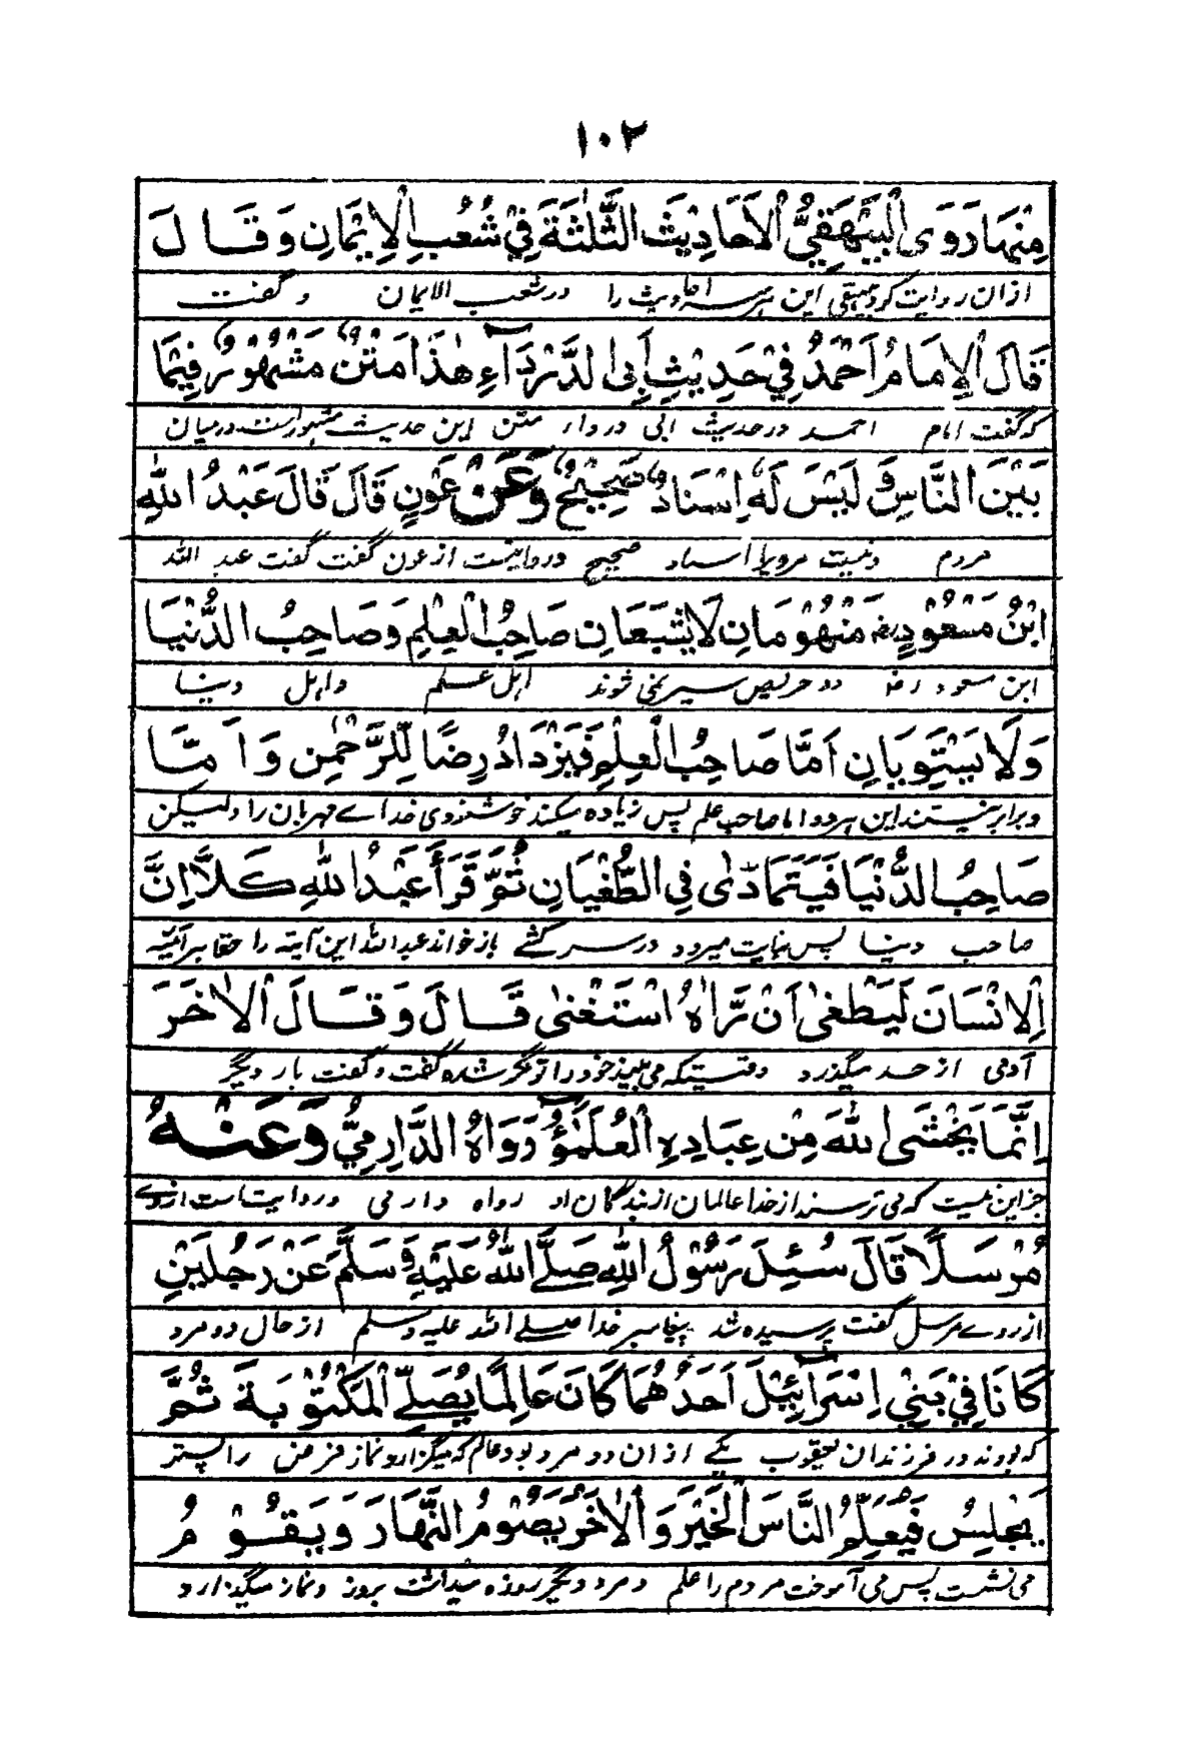 ١٠٢
مِنْهَا رَوَى الْبَيْهَقِيُّ الْأَحَادِيْثَ الثَّلٰثَةَ فِيْ شُعَبِ الْإِيْمَانِ وَقَالَ
ازان روایت کرد بیهقی این هر سه احادیث را در شعب الایمان و گفت
قَالَ الْإِمَامُ اَحْمَدُ فِيْ حَدِيْثِ اَبِى الدَّرْدَآءِ هٰذَا مَتْنٌ مَشْهُوْرٌ فِيْمَا
که گفت امام احمد در حدیث ابی دردار متن این حدیث مشهور است درمیان
بَيْنَ النَّاسِ وَلَيْسَ لَهٗ اِسْنَادٌ صَحِيْحٌ وَعَنْ عَوْنٍ قَالَ قَالَ عَبْدُ اللهِ
مردم و نیست مرویرا اسناد صحیح و روایتست از عون گفت گفت عبد الله
ابْنُ مَسْعُوْدٍ رض مَنْهُوْمَانِ لَا يَشْبَعَانِ صَاحِبُ الْعِلْمِ وَصَاحِبُ الدُّنْيَا
ابن مسعود رضه دو حریص سیر نمی شوند اهل علم و اهل دنیا
وَلَا يَسْتَوِيَانِ اَمَّا صَاحِبُ الْعِلْمِ فَيَزْدَادُ رِضًا لِّلرَّحْمٰنِ وَاَمَّا
و برابر نیستند این هر دو اما صاحب علم پس زیاده میکند خوشنودی خداے مهربان را و لیکن
صَاحِبُ الدُّنْيَا فَيَتَمَادٰى فِي الطُّغْيَانِ ثُمَّ قَرَأَ عَبْدُ اللهِ كَلَّا اِنَّ
صاحب دنیا پس نهایت میرود در سرکشے باز خواند عبد الله این آیته را حقا بر آئینه
الْاِنْسَانَ لَيَطْغٰى اَنْ رَّاٰهُ اسْتَغْنٰى قَالَ وَقَالَ الْاٰخَرَ
آدمی از حد میگذرد وقتیکه می بیند خود را تونگر شده گفت و گفت بار دیگر
اِنَّمَا يَخْشَى اللهَ مِنْ عِبَادِهِ الْعُلَمٰٓؤُ رَوَاهُ الدَّارِمِيُّ وَعَنْهُ
جز این نیست که می ترسند از خدا عالمان از بندگان او رواه دارمی و روایت است ازوے
مُرْسَلًا قَالَ سُئِلَ رَسُوْلُ اللهِ صَلَّے اللهُ عَلَيْهِ وَسَلَّمَ عَنْ رَجُلَيْنِ
از روے مرسل گفت پرسیده شد پیغامبر خدا صلے الله علیه و سلم از حال دو مرد
كَانَا فِيْ بَنِيْ اِسْرَآئِيْلَ اَحَدُهُمَا كَانَ عَالِمًا يُصَلِّے الْمَكْتُوْبَةَ ثُمَّ
که بودند در فرزندان یعقوب یکے ازان دو مرد بود عالم که میگزارد نماز فرض را پستر
يَجْلِسُ فَيُعَلِّمُ النَّاسَ الْخَيْرَ وَالْاٰخَرُ يَصُوْمُ النَّهَارَ وَيَقُوْمُ
می نشست پس می آموخت مردم را علم و مرد دیگر روزه میداشت بروز و نماز میگزارد